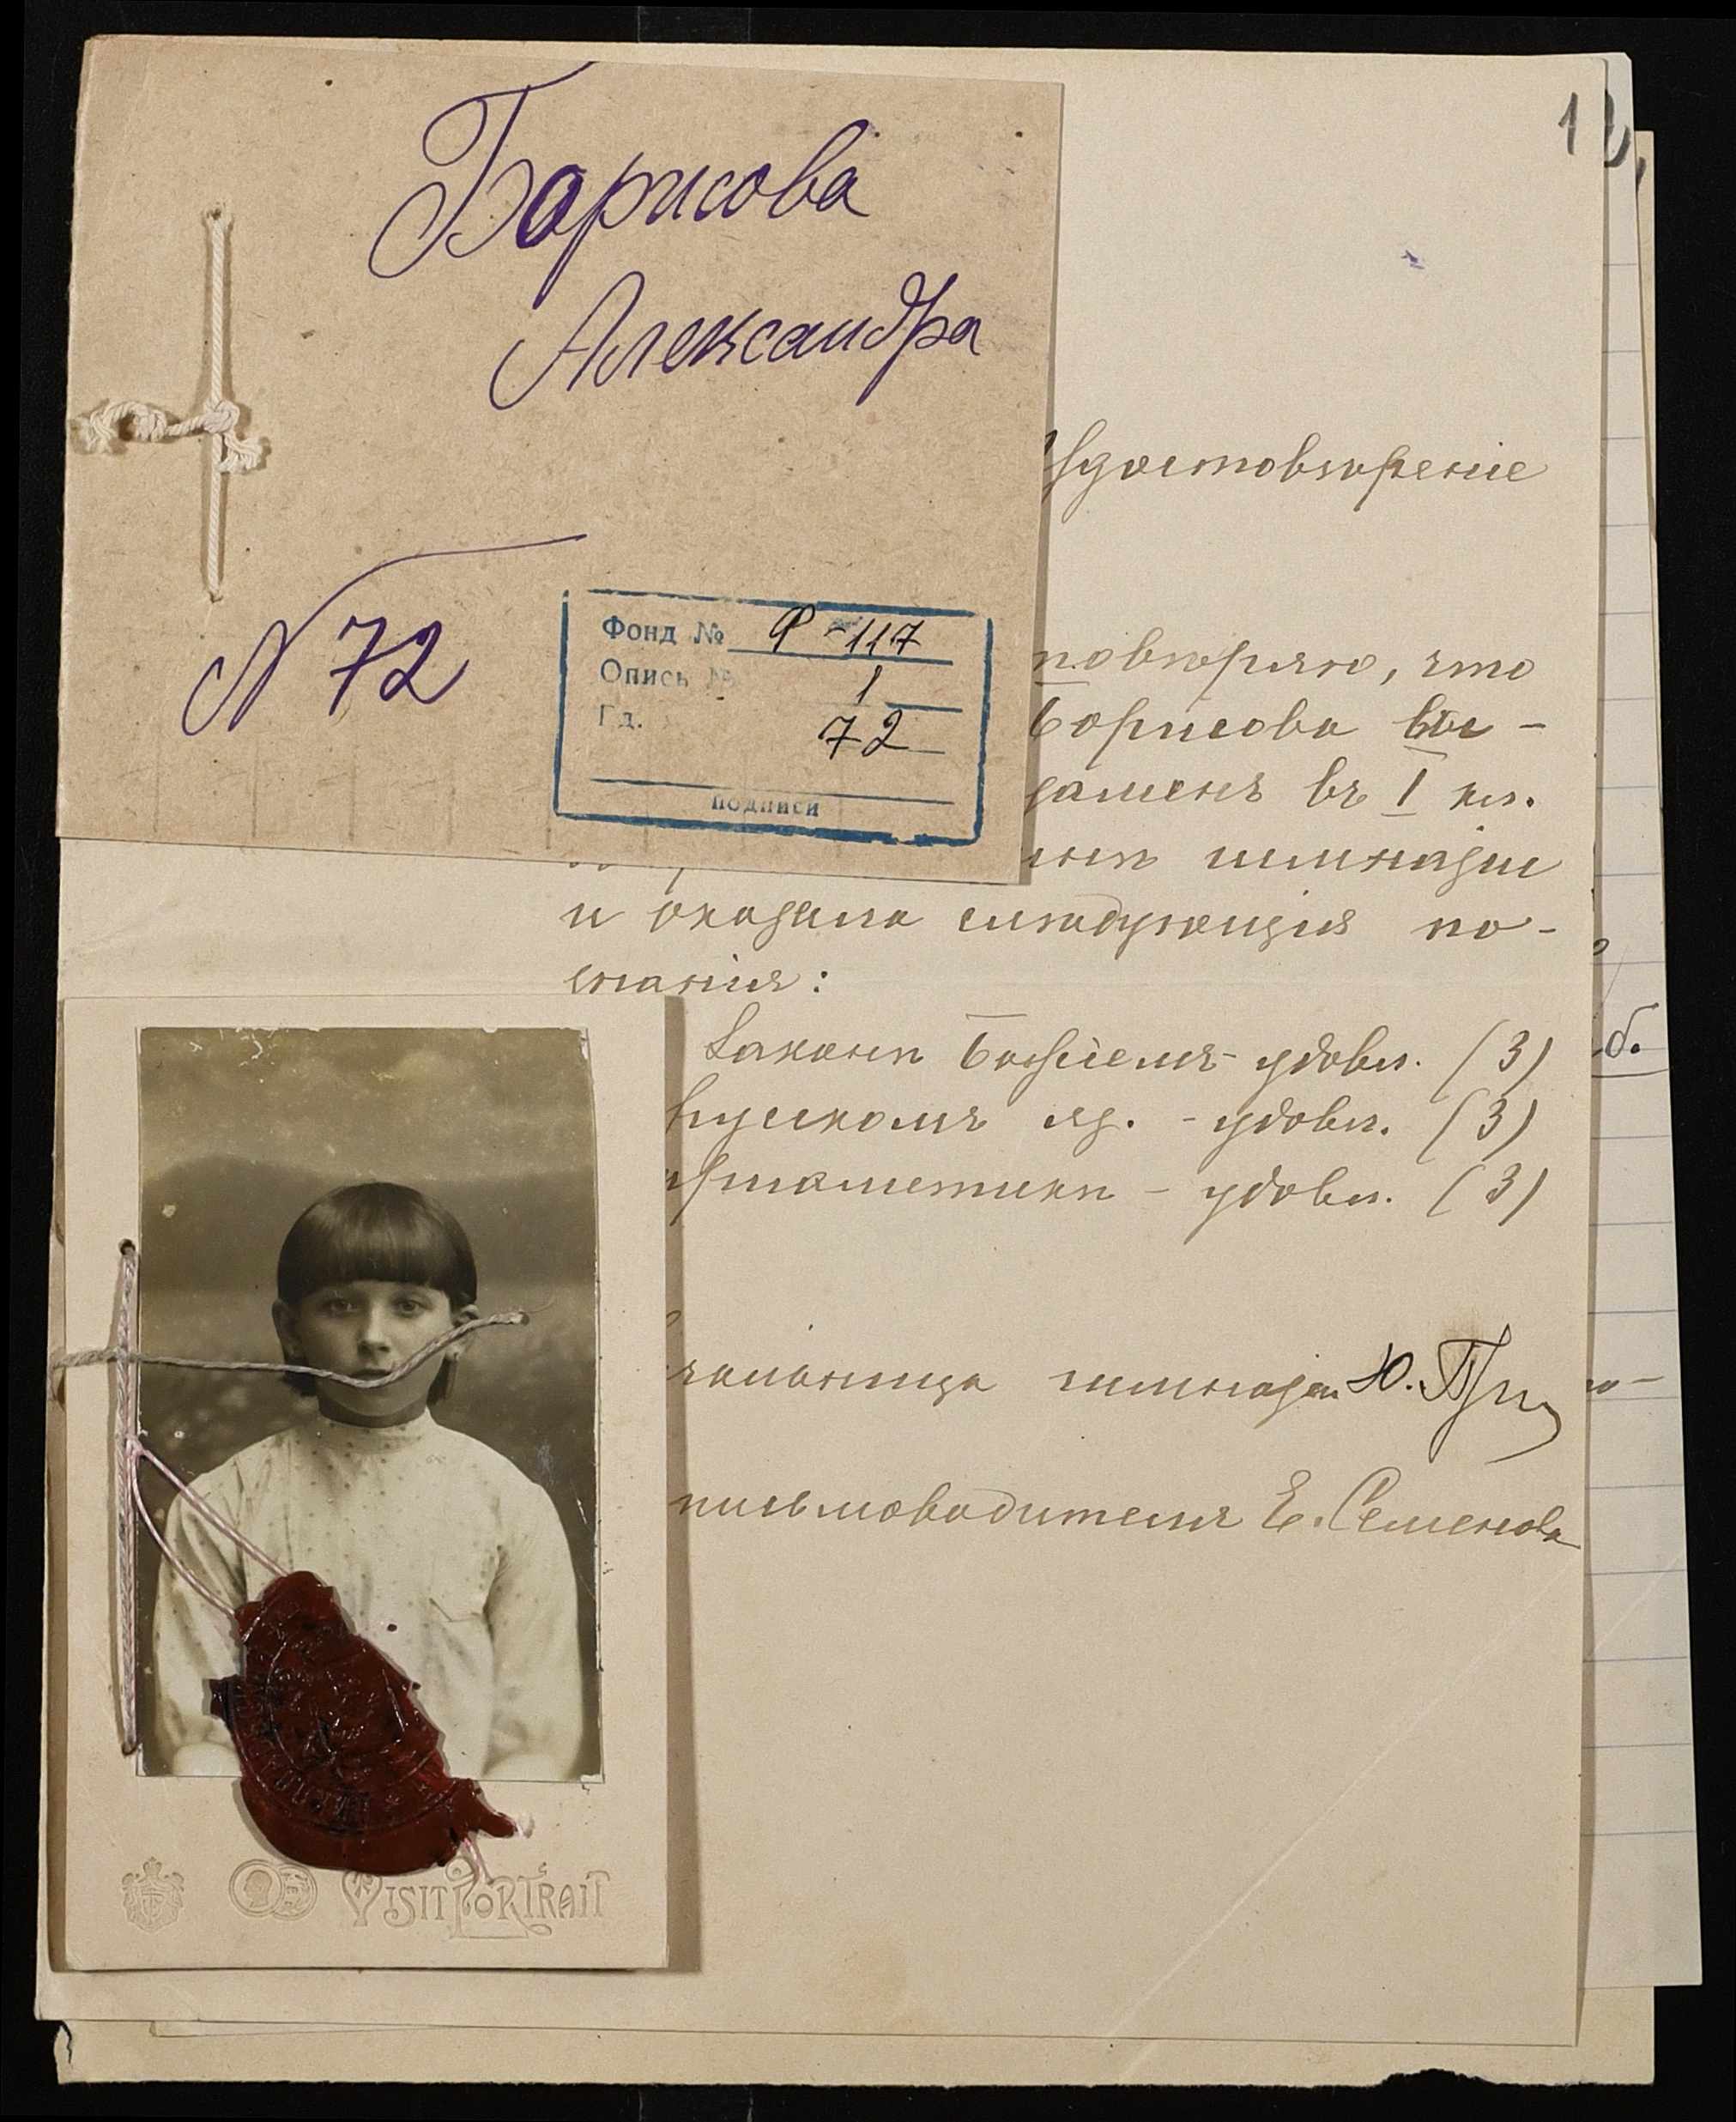 Борисова
Александра
N 72
Фонд № Р-117
Опись № 1
Гд. 72
подписи
12
Удостовѣреніе
товѣряю, что
Борисова вы-
заменъ въ I кл.
гимназіи
и оказала слѣдующія по-
знанія:
Законѣ Божіемъ - удовл. (3)
Русскомъ яз. - удовл. (3)
рифметикѣ - удовл. (3)
чальница гимназіи Ю.
письмоводителя Е. Семенова
б.
VISIT PORTRAIT